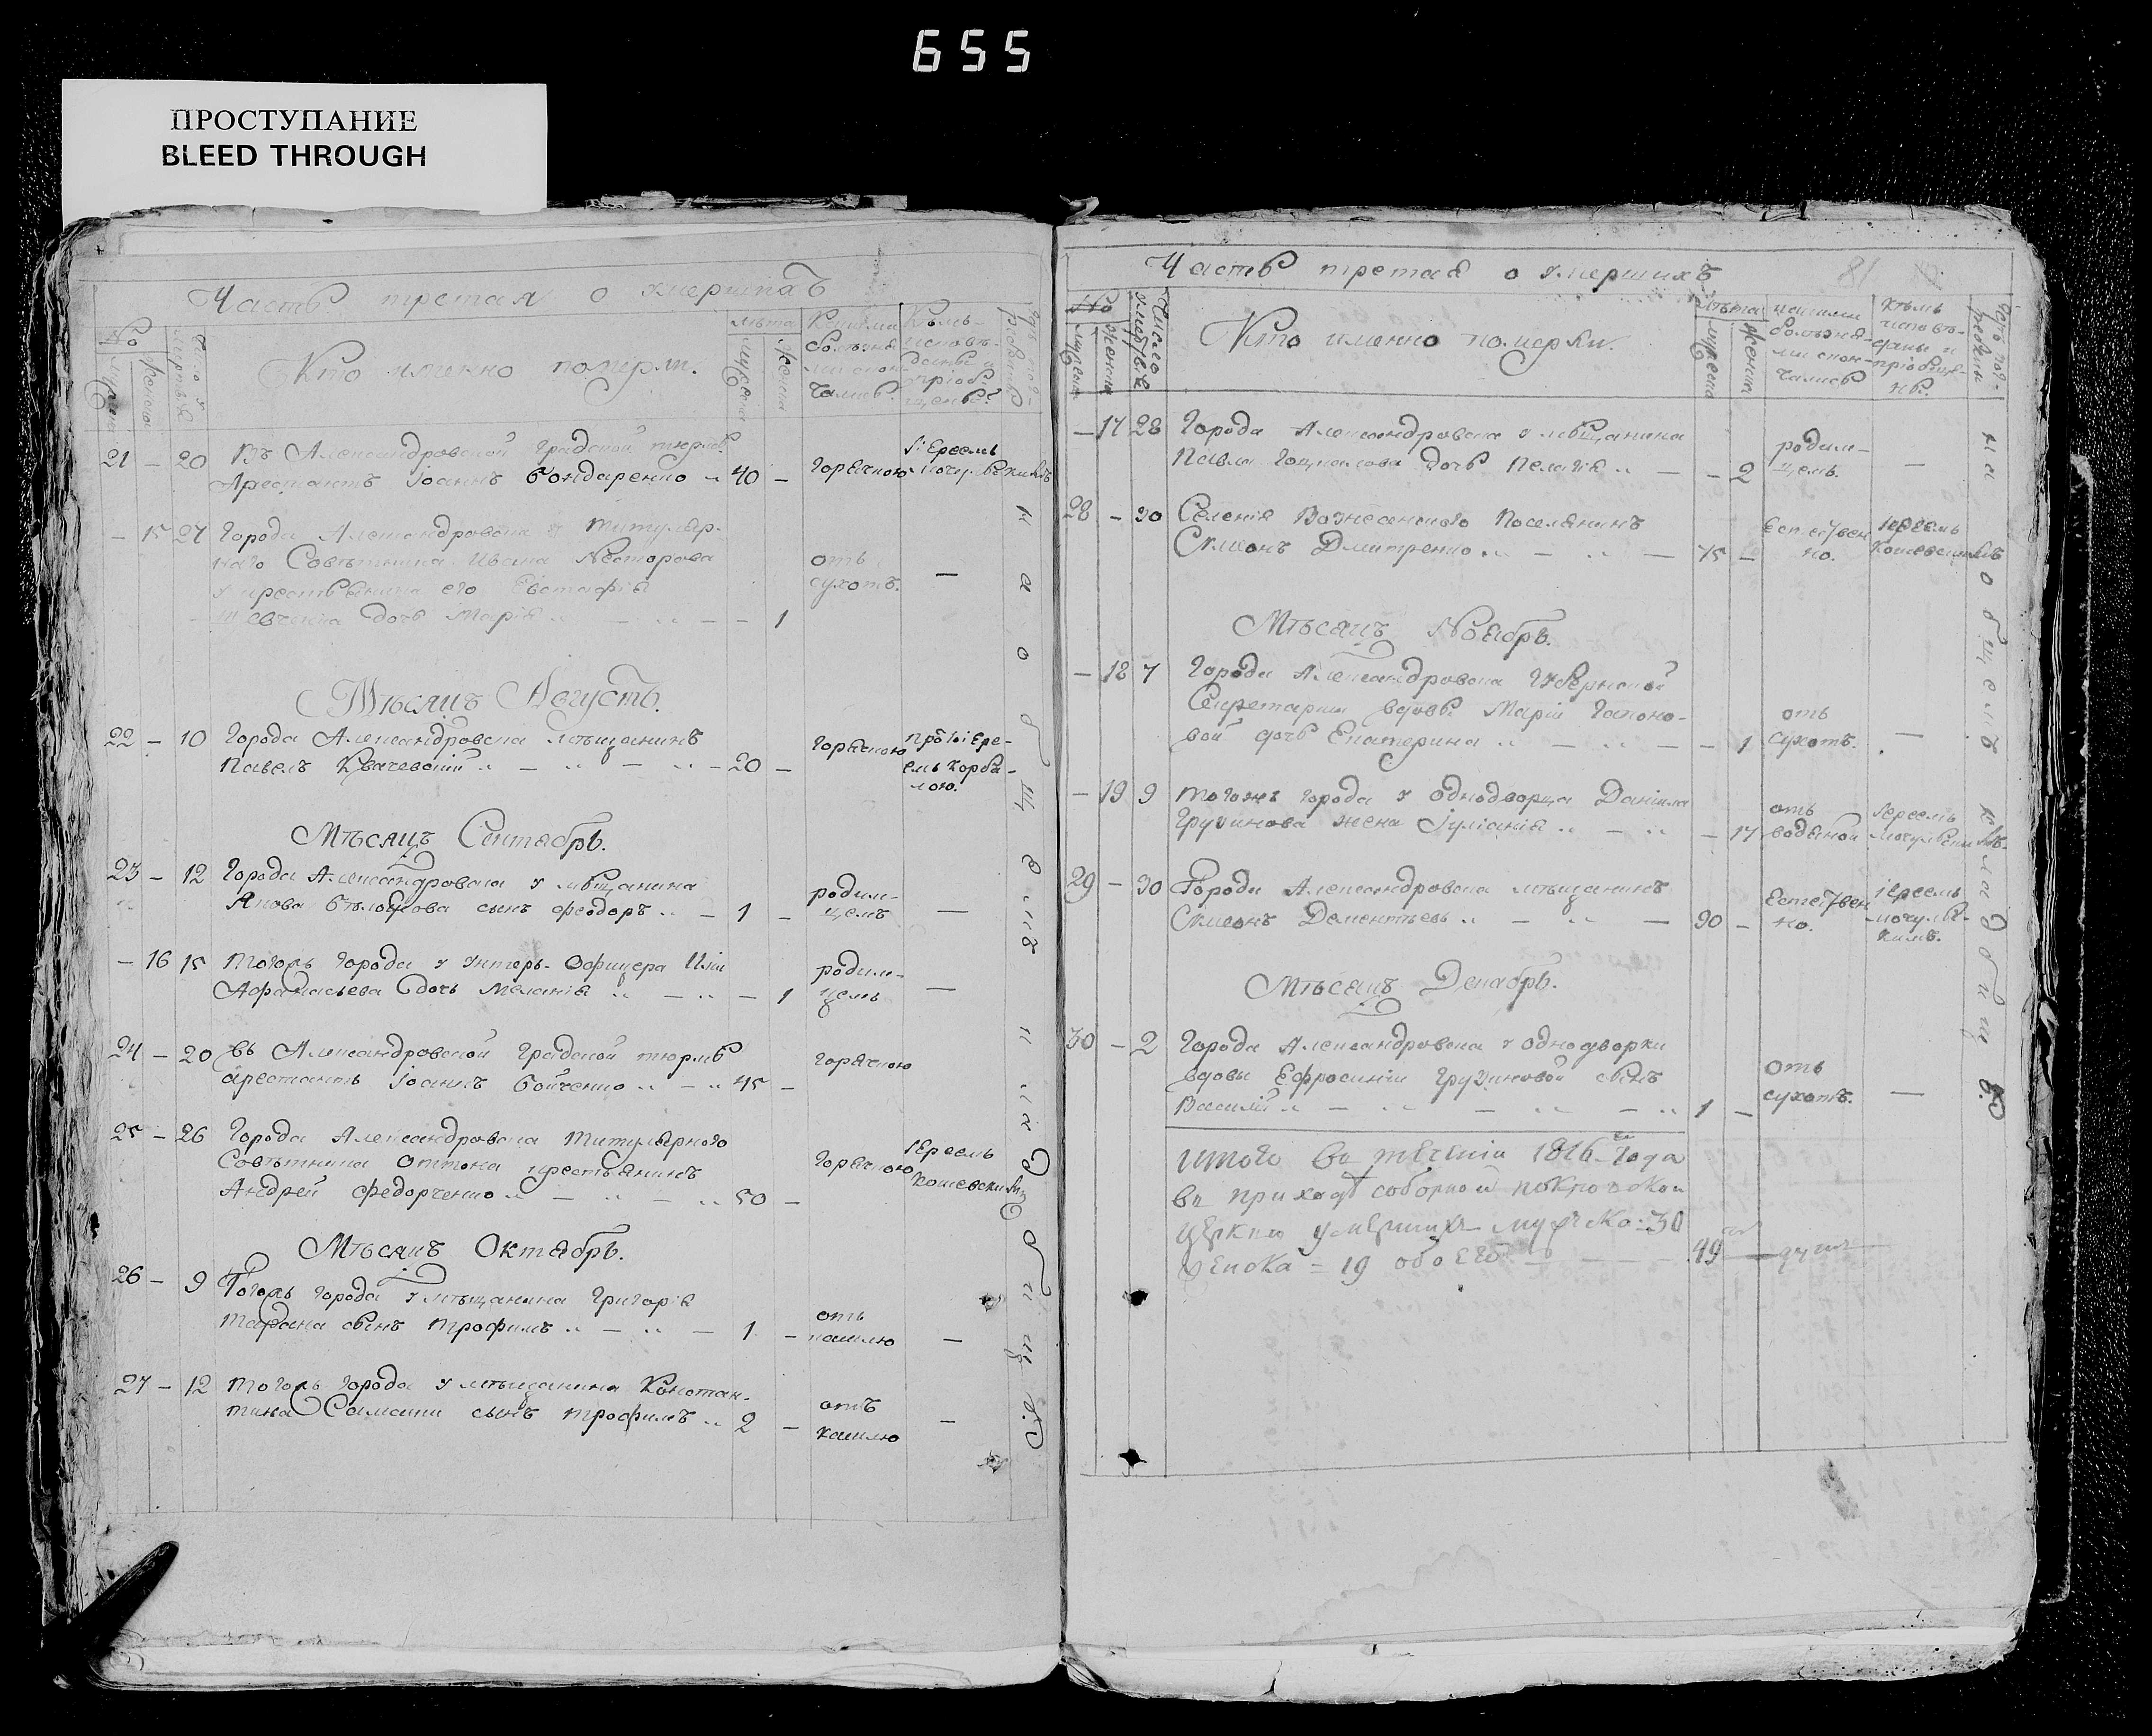 655
ПРОСТУПАНИЕ
BLEED THROUGH
Часть третая о умершихъ
№
Число умертвія
Кто именно померли.
лѣта
Какими болѣзнями скончались
Кѣмъ исповѣданы и пріобщены?
мужеска
женска
21 – 20 Въ Александровской градской тюрмѣ
Арестантъ Іоаннъ Бондаренко 40 – горячкою Іереемъ
– 15 27 Города Александровска у титуляр-
наго Совѣтника Ивана Несторова
у крестьянина его Евстафія
Шевченка дочь Марія – 1 отъ сухотъ. –
Мѣсяцъ Августъ.
22 – 10 Города Александровска мѣщанинъ
Павелъ Квачевскій 20 – горячкою протоіере-
емъ
Мѣсяцъ Сентябрь.
23 – 12 Города Александровска у мѣщанина
Якова сынъ Феодоръ 1 – родим-
цемъ –
– 16 15 Тогожъ города у Унтеръ-Офицера Иліи
Афанасьева дочь Меланія – 1 родим-
цемъ –
24 – 20 Въ Александровской градской тюрмѣ
арестантъ Іоаннъ Бойченко 45 – горячкою
25 – 26 Города Александровска титулярнаго
Совѣтника крестьянинъ
Андрей Федорченко 50 – горячкою Іереемъ
Кошевскимъ
Мѣсяцъ Октябрь.
26 – 9 Тогожъ города у мѣщанина Григорія
Тарана сынъ Трофимъ 1 – отъ
кашлю –
27 – 12 Тогожъ города у мѣщанина Констан-
тина сынъ Трофимъ 2 – отъ
кашлю –
на общемъ кладбищѣ
Часть третая о умершихъ
81
№
Число умертвіе
Кто именно померли.
лѣта
какими болѣзнями скончались
кѣмъ исповѣданы и пріобщены.
гдѣ погребены
мужеска
женска
– 17 28 Города Александровска у мѣщанина
Павла дочь Пелагія – 2 родим-
цемъ. –
28 – 30 Селенія Вознесенского Поселянинъ
Симеонъ Дмитренко 75 – Естествен
но. Іереемъ
Кошевскимъ
Мѣсяцъ Ноябрь.
– 18 7 Города Александровска Губернской
Секретарши вдовы Маріи Гапоно-
вой дочь Екатерина – 1 отъ
сухотъ. –
– 19 9 тогожъ города у однодворца Даніила
Грузинова жена Іуліанія – 17 отъ
водяной Іереемъ
29 – 30 Города Александровска мѣщанинъ
Симеонъ Дементьевъ 90 – Естествен
но. Іереемъ
Мѣсяцъ Декабрь.
30 – 2 Города Александровска у однодворки
вдовы Ефросиніи Грузиновой сынъ
Василій 1 – отъ
сухотъ. –
на общемъ кладбищѣ.
Итого въ теченіи 1816го года
въ приходѣ соборной покровской
церкви умершихъ мужеска: 30
женска = 19 обоего 49 душъ